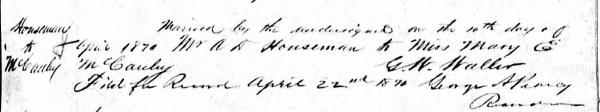 Houseman
to
McCauly
Married by the undersigned on the 10th day of
April 1870 Mr A D Houseman to Miss Mary E
McCauly G. W. Waller
Filed for Record April 22nd 1870 George A